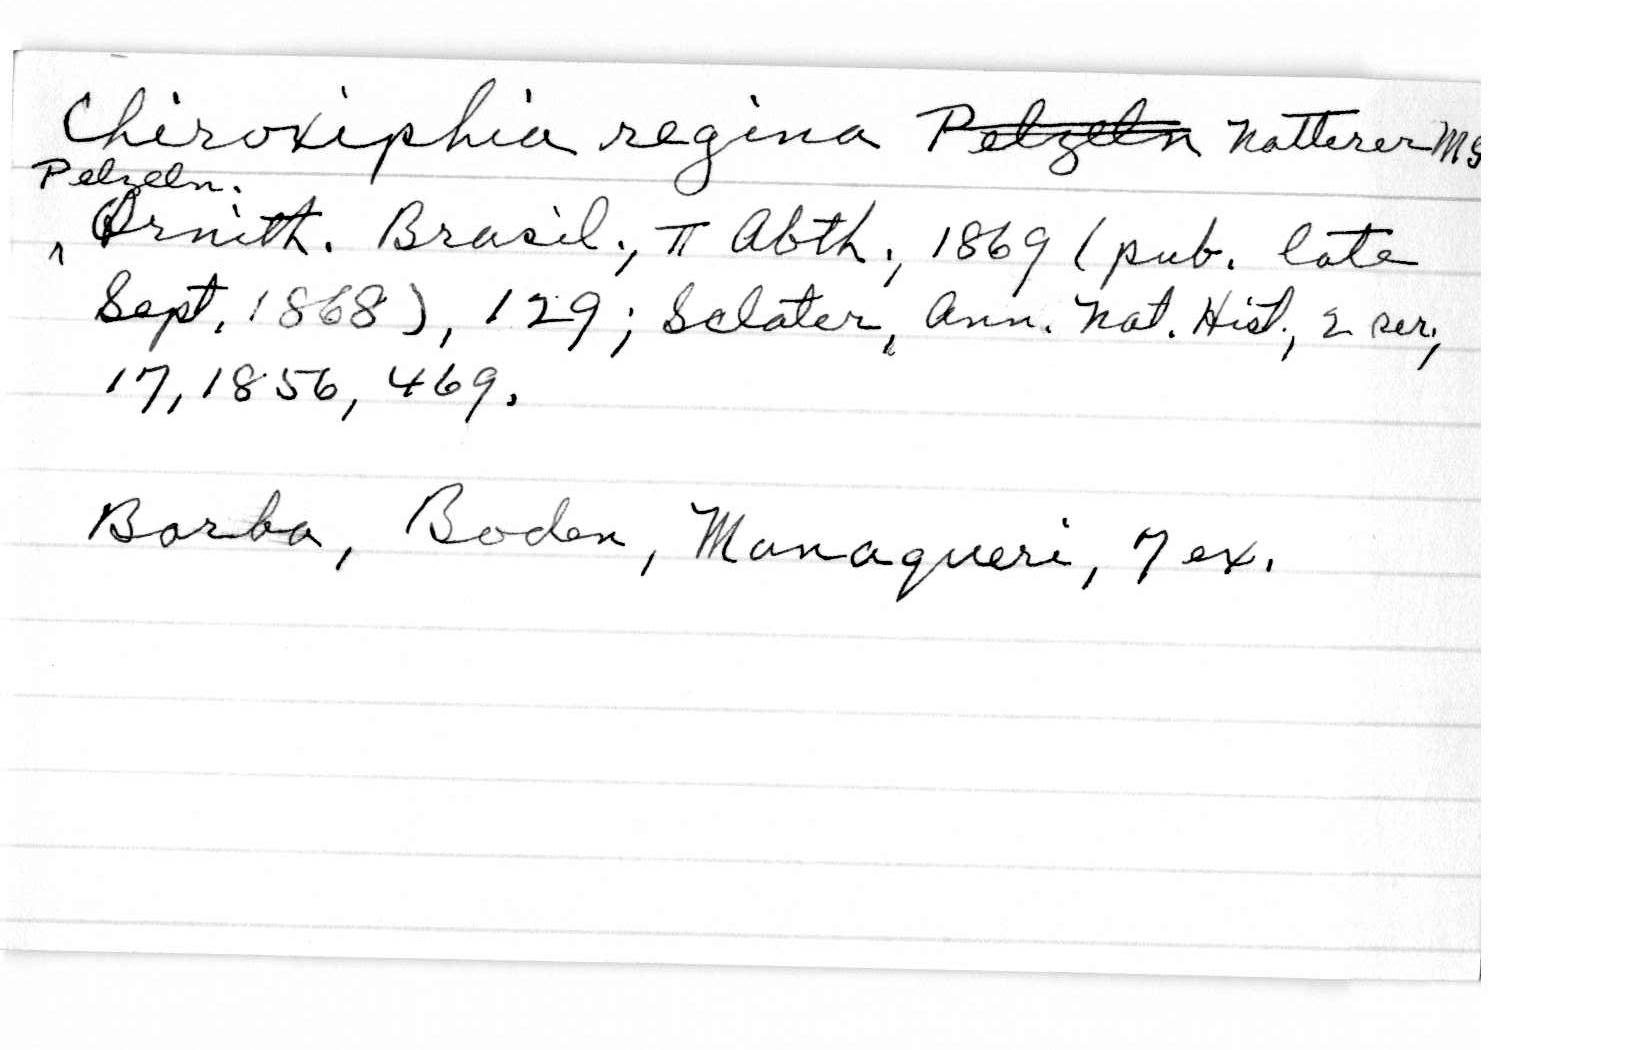 Chiroxiphia regina Pelzeln Natterer MS
Pelzeln.
^ Ornith. Brasil., II Abth., 1869 (pub. late
Sept. 1868), 129; Sclater, Ann. Nat. Hist., 2 ser.,
17, 1856, 469.
Borba, Boden, Manaqueri, 7 ex.